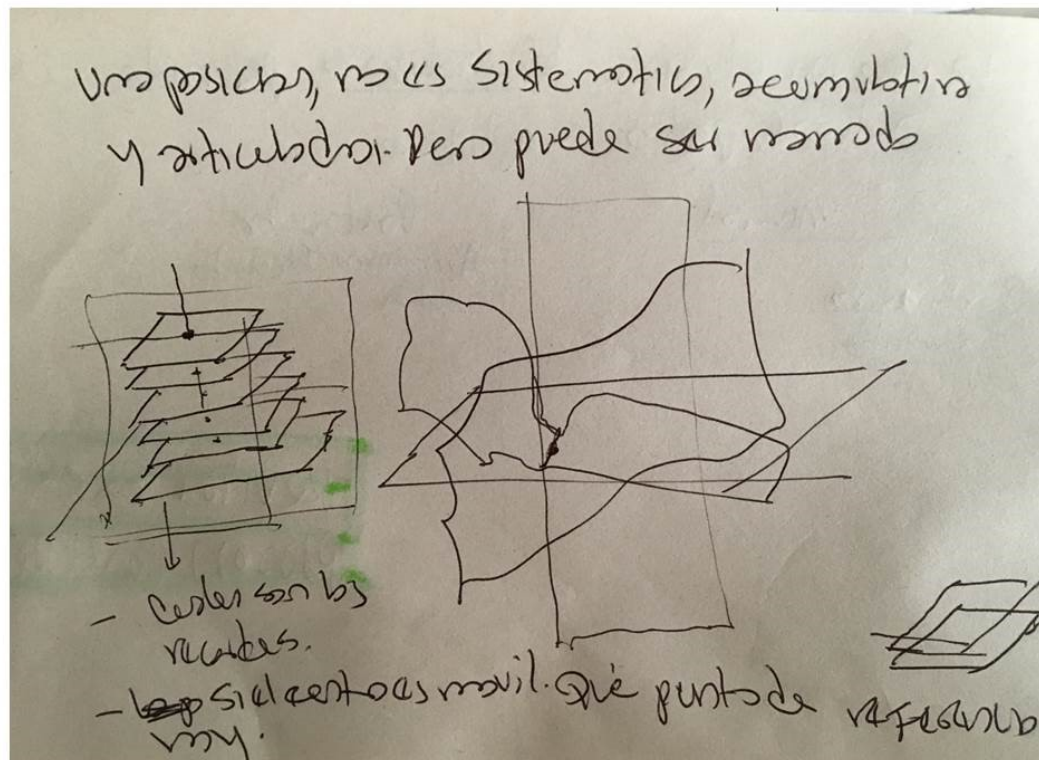 una posición, no es sistemática, acumulativa
y articulada. Pero puede ser narrado
- Cuales son los
recortes.
- si el centro es movil. Qué punto de referencia
hay.